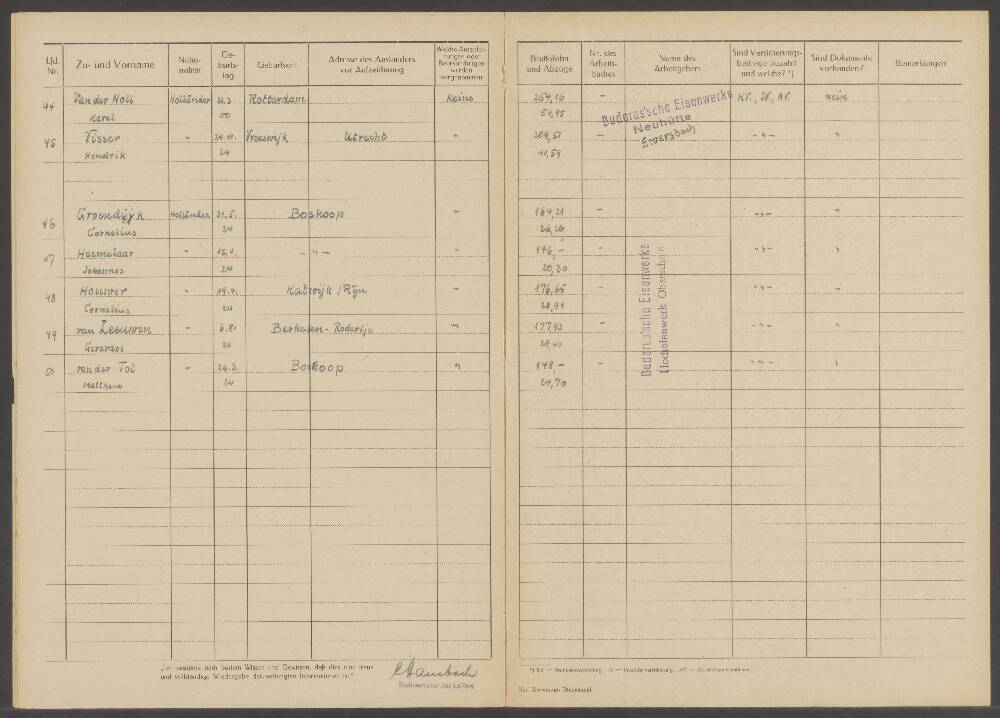 Lfd. Nr.
Zu- und Vorname
Natio-
nalität
Ge-
burts-
tag
Geburtsort
Adresse des Ausländers
vor Aufzeichnung
Welche Aufzeich-
nungen oder
Beurkundungen
wurden
vorgenommen
Bruttolohn
und Abzüge
Nr. des
Arbeits-
buches
Name des
Arbeitgebers
Sind Versicherungs-
beiträge bezahlt
und welche? *)
Sind Dokumente
vorhanden?
Bemerkungen
44 Van der Holl Holländer 21.3. Rotterdam Keine 254,16 – K.V., IV., AV. nein
Karel 00 54,95
Buderus'sche Eisenwerke
Neuhütte
Ewersbach
45 Visser " 24.11. Vreeswijk Utrecht " 209,51 – -"- "
Hendrik 24 41,59
46 Groendijk Holländer 31.5. Boskoop " 184,21 – -"- "
Cornelius 24 26,26
47 " 15.4. -"- " 146,- – -"- "
Johannes 24 20,30
48 Houwer " 19.4. Katwijk / Rijn " 176,65 – -"- "
Cornelius 24 28,91
49 van Leeuwen " 6.8. " 177,93 – -"- "
Gerardos 24 29,40
50 van der Tol " 26.3. Boskoop " 148,- – -"- "
Mattheus 24 24,70
Buderus'sche Eisenwerke
Hochofenwerk Oberscheld
„Ich bestätige nach bestem Wissen und Gewissen, daß dies eine treue
und vollständige Wiedergabe der verlangten Informationen ist."
Stellvertreter des Leiters
*) KV = Krankenversicherung, IV = Invalidenversicherung, AV = Arbeitslosenversicherung